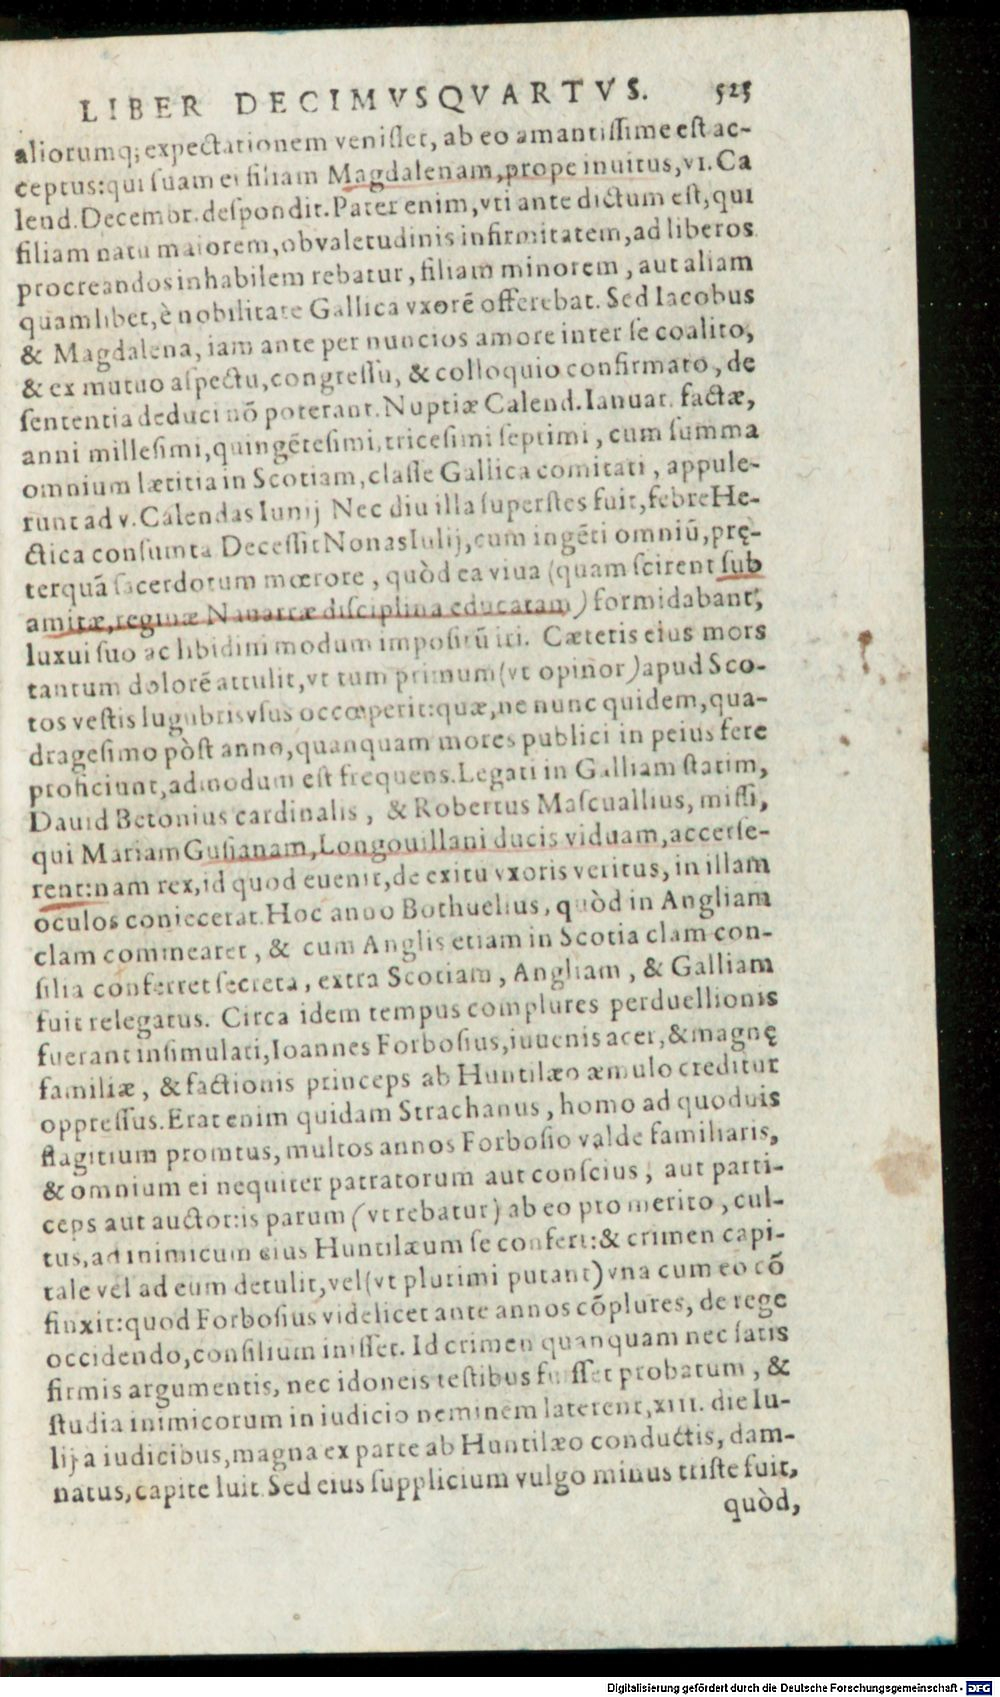 LIBER DECIMVSQVARTVS. 525
aliorumq; expectationem venisset, ab eo amantissime est ac-
ceptus: qui suam ei filiam Magdalenam, prope inuitus, VI. Ca
lend. Decembr. despondit. Pater enim, vti ante dictum est, qui
filiam natu maiorem, ob valetudinis infirmitatem, ad liberos
procreandos inhabilem rebatur, filiam minorem, aut aliam
quamlibet, è nobilitate Gallica vxorē offerebat. Sed Iacobus
& Magdalena, iam ante per nuncios amore inter se coalito,
& ex mutuo aspectu, congressu, & colloquio confirmato, de
sententia deduci nō poterant. Nuptiæ Calend. Ianuar. factæ,
anni millesimi, quingētesimi, tricesimi septimi, cum summa
omnium lætitia in Scotiam, classe Gallica comitati, appule-
runt ad v. Calendas Iunij Nec diu illa superstes fuit, febre He-
ctica consumta Decessit Nonas Iulij, cum ingēti omniū, prę-
terquā sacerdotum mœrore, quòd ea viua (quam scirent sub
amitæ, reginæ Nauarræ disciplina educatam) formidabant,
luxui suo ac libidini modum impositū iri. Cæteris eius mors
tantum dolorē attulit, vt tum primum (vt opinor) apud Sco-
tos vestis lugubris vsus occœperit: quæ, ne nunc quidem, qua-
dragesimo pòst anno, quanquam mores publici in peius fere
proficiunt, admodum est frequens. Legati in Galliam statim,
Dauid Betonius cardinalis, & Robertus Mascuallius, missi,
qui Mariam Gusianam, Longouillani ducis viduam, accerse-
rent: nam rex, id quod euenit, de exitu vxoris veritus, in illam
oculos coniecerat. Hoc anuo Bothuelius, quòd in Angliam
clam commearet, & cum Anglis etiam in Scotia clam con-
silia conferret secreta, extra Scotiam, Angliam, & Galliam
fuit relegatus. Circa idem tempus complures perduellionis
fuerant insimulati, Ioannes Forbosius, iuuenis acer, & magnę
familiæ, & factionis princeps ab Huntilæo æmulo creditur
oppressus. Erat enim quidam Strachanus, homo ad quoduis
flagitium promtus, multos annos Forbosio valde familiaris,
& omnium ei nequiter patratorum aut conscius, aut parti-
ceps aut auctor: is parum (vt rebatur) ab eo pro merito, cul-
tus, ad inimicum eius Huntilæum se confert: & crimen capi-
tale vel ad eum detulit, vel (vt plurimi putant) vna cum eo cō
finxit: quod Forbosius videlicet ante annos cōplures, de rege
occidendo, consilium inisset. Id crimen quanquam nec satis
firmis argumentis, nec idoneis testibus fuisset probatum, &
studia inimicorum in iudicio neminem laterent, XIII. die Iu-
lij a iudicibus, magna ex parte ab Huntilæo conductis, dam-
natus, capite luit. Sed eius supplicium vulgo minus triste fuit,
quòd,
Digitalisierung gefördert durch die Deutsche Forschungsgemeinschaft - DFG